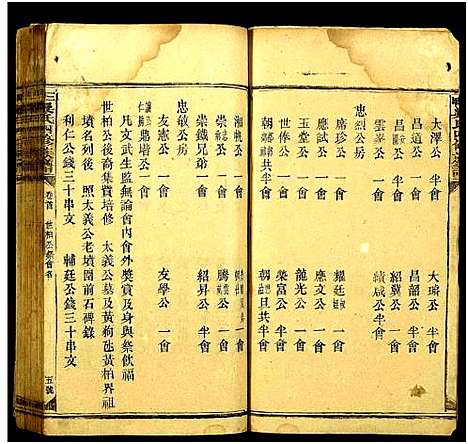 大澤公 半會 大璘公 半會
昌遠公 一會 昌韶公 半會
昌文公 半會 紹冀公 半會
雲峯公 一會 績咸公 一會
忠烈公房
席珍公 一會 耀廷公 一會
應試公 一會 應文公 一會
世俸公 一會 龍光公 一會
榮富公 一會
朝 公共半會 朝 旦共半會
湘帆公 一會
崇 公 一會 騰 公 一會
崇鐵兄弟 一會 紹昇公 半會
忠敏公房
友憲公 一會 友學公 一會
仁 公 一會
凡文武生監無論會內會外獎賞及身與祭飲福
世柏公後裔集費培修 太義公墓及黃柏界祖
墳名列後 照太義公老墳圍前石碑錄
利仁公錢三十串文 輔廷公錢三十串文
卷首 世柏公祭會名
五號